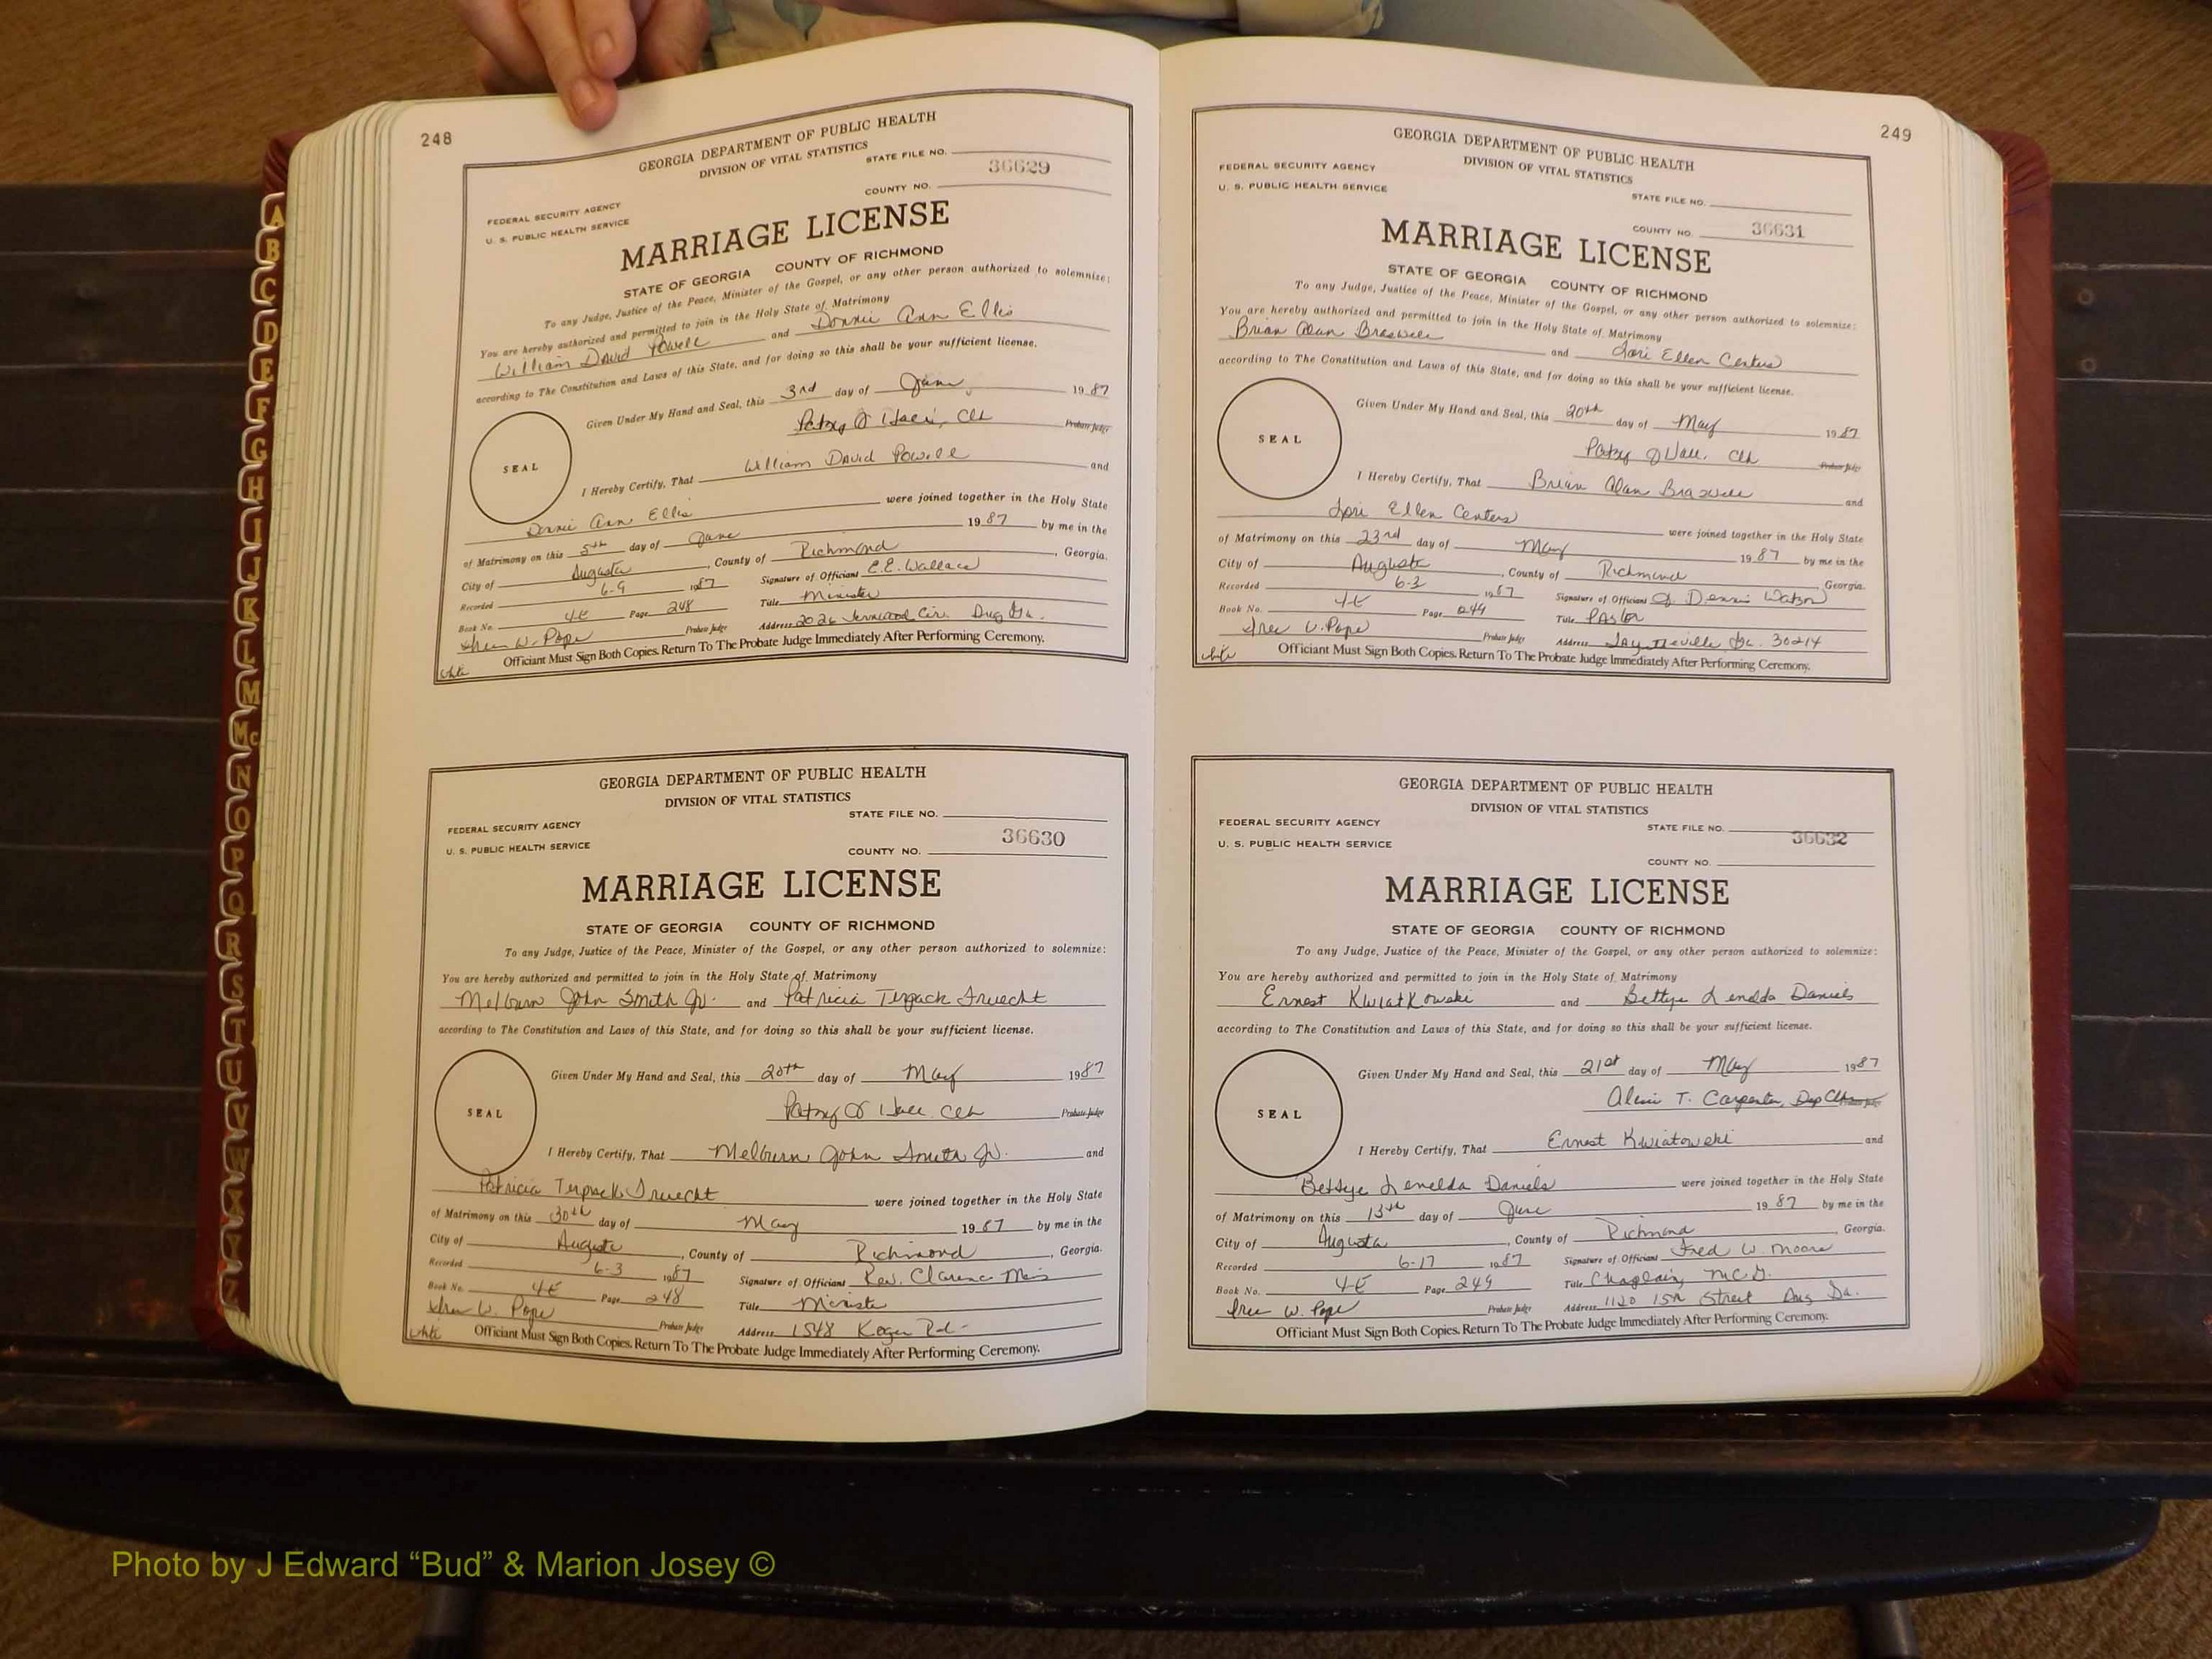 248
GEORGIA DEPARTMENT OF PUBLIC HEALTH
DIVISION OF VITAL STATISTICS
STATE FILE NO.
36629
FEDERAL SECURITY AGENCY
COUNTY NO.
U. S. PUBLIC HEALTH SERVICE
MARRIAGE LICENSE
STATE OF GEORGIA COUNTY OF RICHMOND
To any Judge, Justice of the Peace, Minister of the Gospel, or any other person authorized to solemnize:
You are hereby authorized and permitted to join in the Holy State of Matrimony
William David Powell and Donnie Ann Ellis
according to The Constitution and Laws of this State, and for doing so this shall be your sufficient license.
Given Under My Hand and Seal, this 3rd day of June 19 87
Patsy Probate Judge
SEAL
I Hereby Certify, That William David Powell and
Donnie Ann Ellis were joined together in the Holy State
of Matrimony on this 5th day of June 19 87 by me in the
City of Augusta, County of Richmond, Georgia.
Recorded 6-9 1987 Signature of Officiant E.E. Wallace
Book No. 4E Page 248 Title Minister
W. Pope Probate Judge Address 2026 Cir. Aug Ga.
White Officiant Must Sign Both Copies. Return To The Probate Judge Immediately After Performing Ceremony.
GEORGIA DEPARTMENT OF PUBLIC HEALTH
DIVISION OF VITAL STATISTICS
STATE FILE NO.
FEDERAL SECURITY AGENCY
36630
U. S. PUBLIC HEALTH SERVICE
COUNTY NO.
MARRIAGE LICENSE
STATE OF GEORGIA COUNTY OF RICHMOND
To any Judge, Justice of the Peace, Minister of the Gospel, or any other person authorized to solemnize:
You are hereby authorized and permitted to join in the Holy State of Matrimony
Melburn John Smith Jr. and Patricia Truecht
according to The Constitution and Laws of this State, and for doing so this shall be your sufficient license.
Given Under My Hand and Seal, this 20th day of May 1987
Patsy Probate Judge
SEAL
I Hereby Certify, That Melburn John Smith Jr. and
Patricia Truecht were joined together in the Holy State
of Matrimony on this 30th day of May 19 87 by me in the
City of Augusta, County of Richmond, Georgia.
Recorded 6-3 1987 Signature of Officiant Rev. Clarence
Book No. 4E Page 248 Title Minister
W. Pope Probate Judge Address 1548 Koger Rd.
White Officiant Must Sign Both Copies. Return To The Probate Judge Immediately After Performing Ceremony.
249
GEORGIA DEPARTMENT OF PUBLIC HEALTH
DIVISION OF VITAL STATISTICS
FEDERAL SECURITY AGENCY
U. S. PUBLIC HEALTH SERVICE
STATE FILE NO.
COUNTY NO. 36631
MARRIAGE LICENSE
STATE OF GEORGIA COUNTY OF RICHMOND
To any Judge, Justice of the Peace, Minister of the Gospel, or any other person authorized to solemnize:
You are hereby authorized and permitted to join in the Holy State of Matrimony
Brian Alan Braswell and Lori Ellen Centers
according to The Constitution and Laws of this State, and for doing so this shall be your sufficient license.
Given Under My Hand and Seal, this 20th day of May 1987
Patsy Probate Judge
SEAL
I Hereby Certify, That Brian Alan Braswell and
Lori Ellen Centers were joined together in the Holy State
of Matrimony on this 23rd day of May 1987 by me in the
City of Augusta, County of Richmond, Georgia.
Recorded 6-3 1987 Signature of Officiant J. Dennis Watson
Book No. 4E Page 249 Title Pastor
W. Pope Probate Judge Address Fayetteville Ga. 30214
White Officiant Must Sign Both Copies. Return To The Probate Judge Immediately After Performing Ceremony.
GEORGIA DEPARTMENT OF PUBLIC HEALTH
DIVISION OF VITAL STATISTICS
FEDERAL SECURITY AGENCY
STATE FILE NO.
36632
U. S. PUBLIC HEALTH SERVICE
COUNTY NO.
MARRIAGE LICENSE
STATE OF GEORGIA COUNTY OF RICHMOND
To any Judge, Justice of the Peace, Minister of the Gospel, or any other person authorized to solemnize:
You are hereby authorized and permitted to join in the Holy State of Matrimony
Ernest Kwiatkowski and Bettye Lenelda Daniels
according to The Constitution and Laws of this State, and for doing so this shall be your sufficient license.
Given Under My Hand and Seal, this 21st day of May 1987
T. Carpenter, Dep Clk Probate Judge
SEAL
I Hereby Certify, That Ernest Kwiatowski and
Bettye Lenelda Daniels were joined together in the Holy State
of Matrimony on this 13th day of June 19 87 by me in the
City of Augusta, County of Richmond, Georgia.
Recorded 6-17 1987 Signature of Officiant Fred W. Moore
Book No. 4E Page 249 Title Chaplain, MCG.
W. Pope Probate Judge Address 1120 15th Street Aug Ga.
Officiant Must Sign Both Copies. Return To The Probate Judge Immediately After Performing Ceremony.
A
B
C
D
E
F
G
H
I
J
K
L
M
Mc
N
O
P
Q
R
S
T
U
V
W
X
Y
Z
Photo by J Edward “Bud” & Marion Josey ©